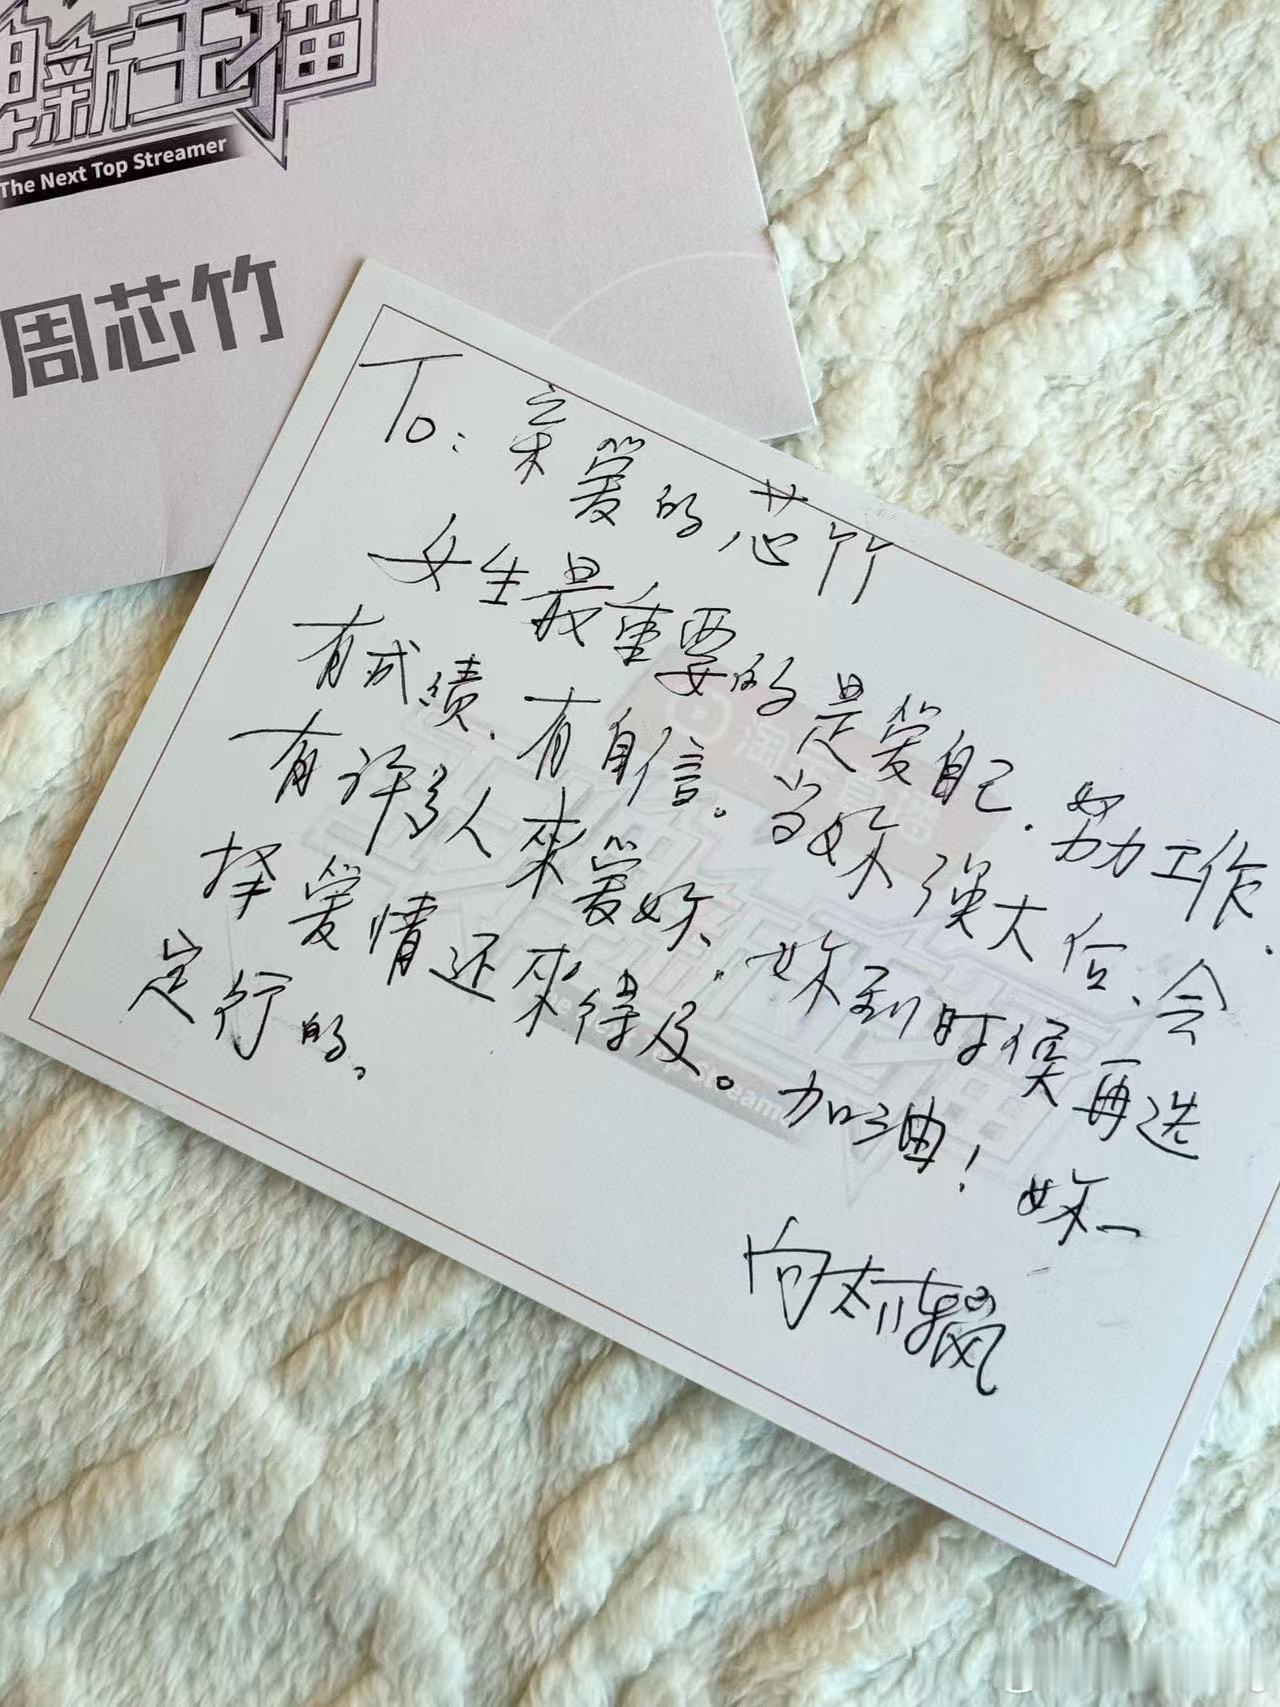 新主播
The Next Top Streamer
周芯竹
To: 亲爱的芯竹
女生最重要的是爱自己.努力工作.
有成绩.有自信。当妳强大后、会
有许多人來爱妳、妳到时候再选
择爱情还來得及。加油！妳一
定行的。
向太